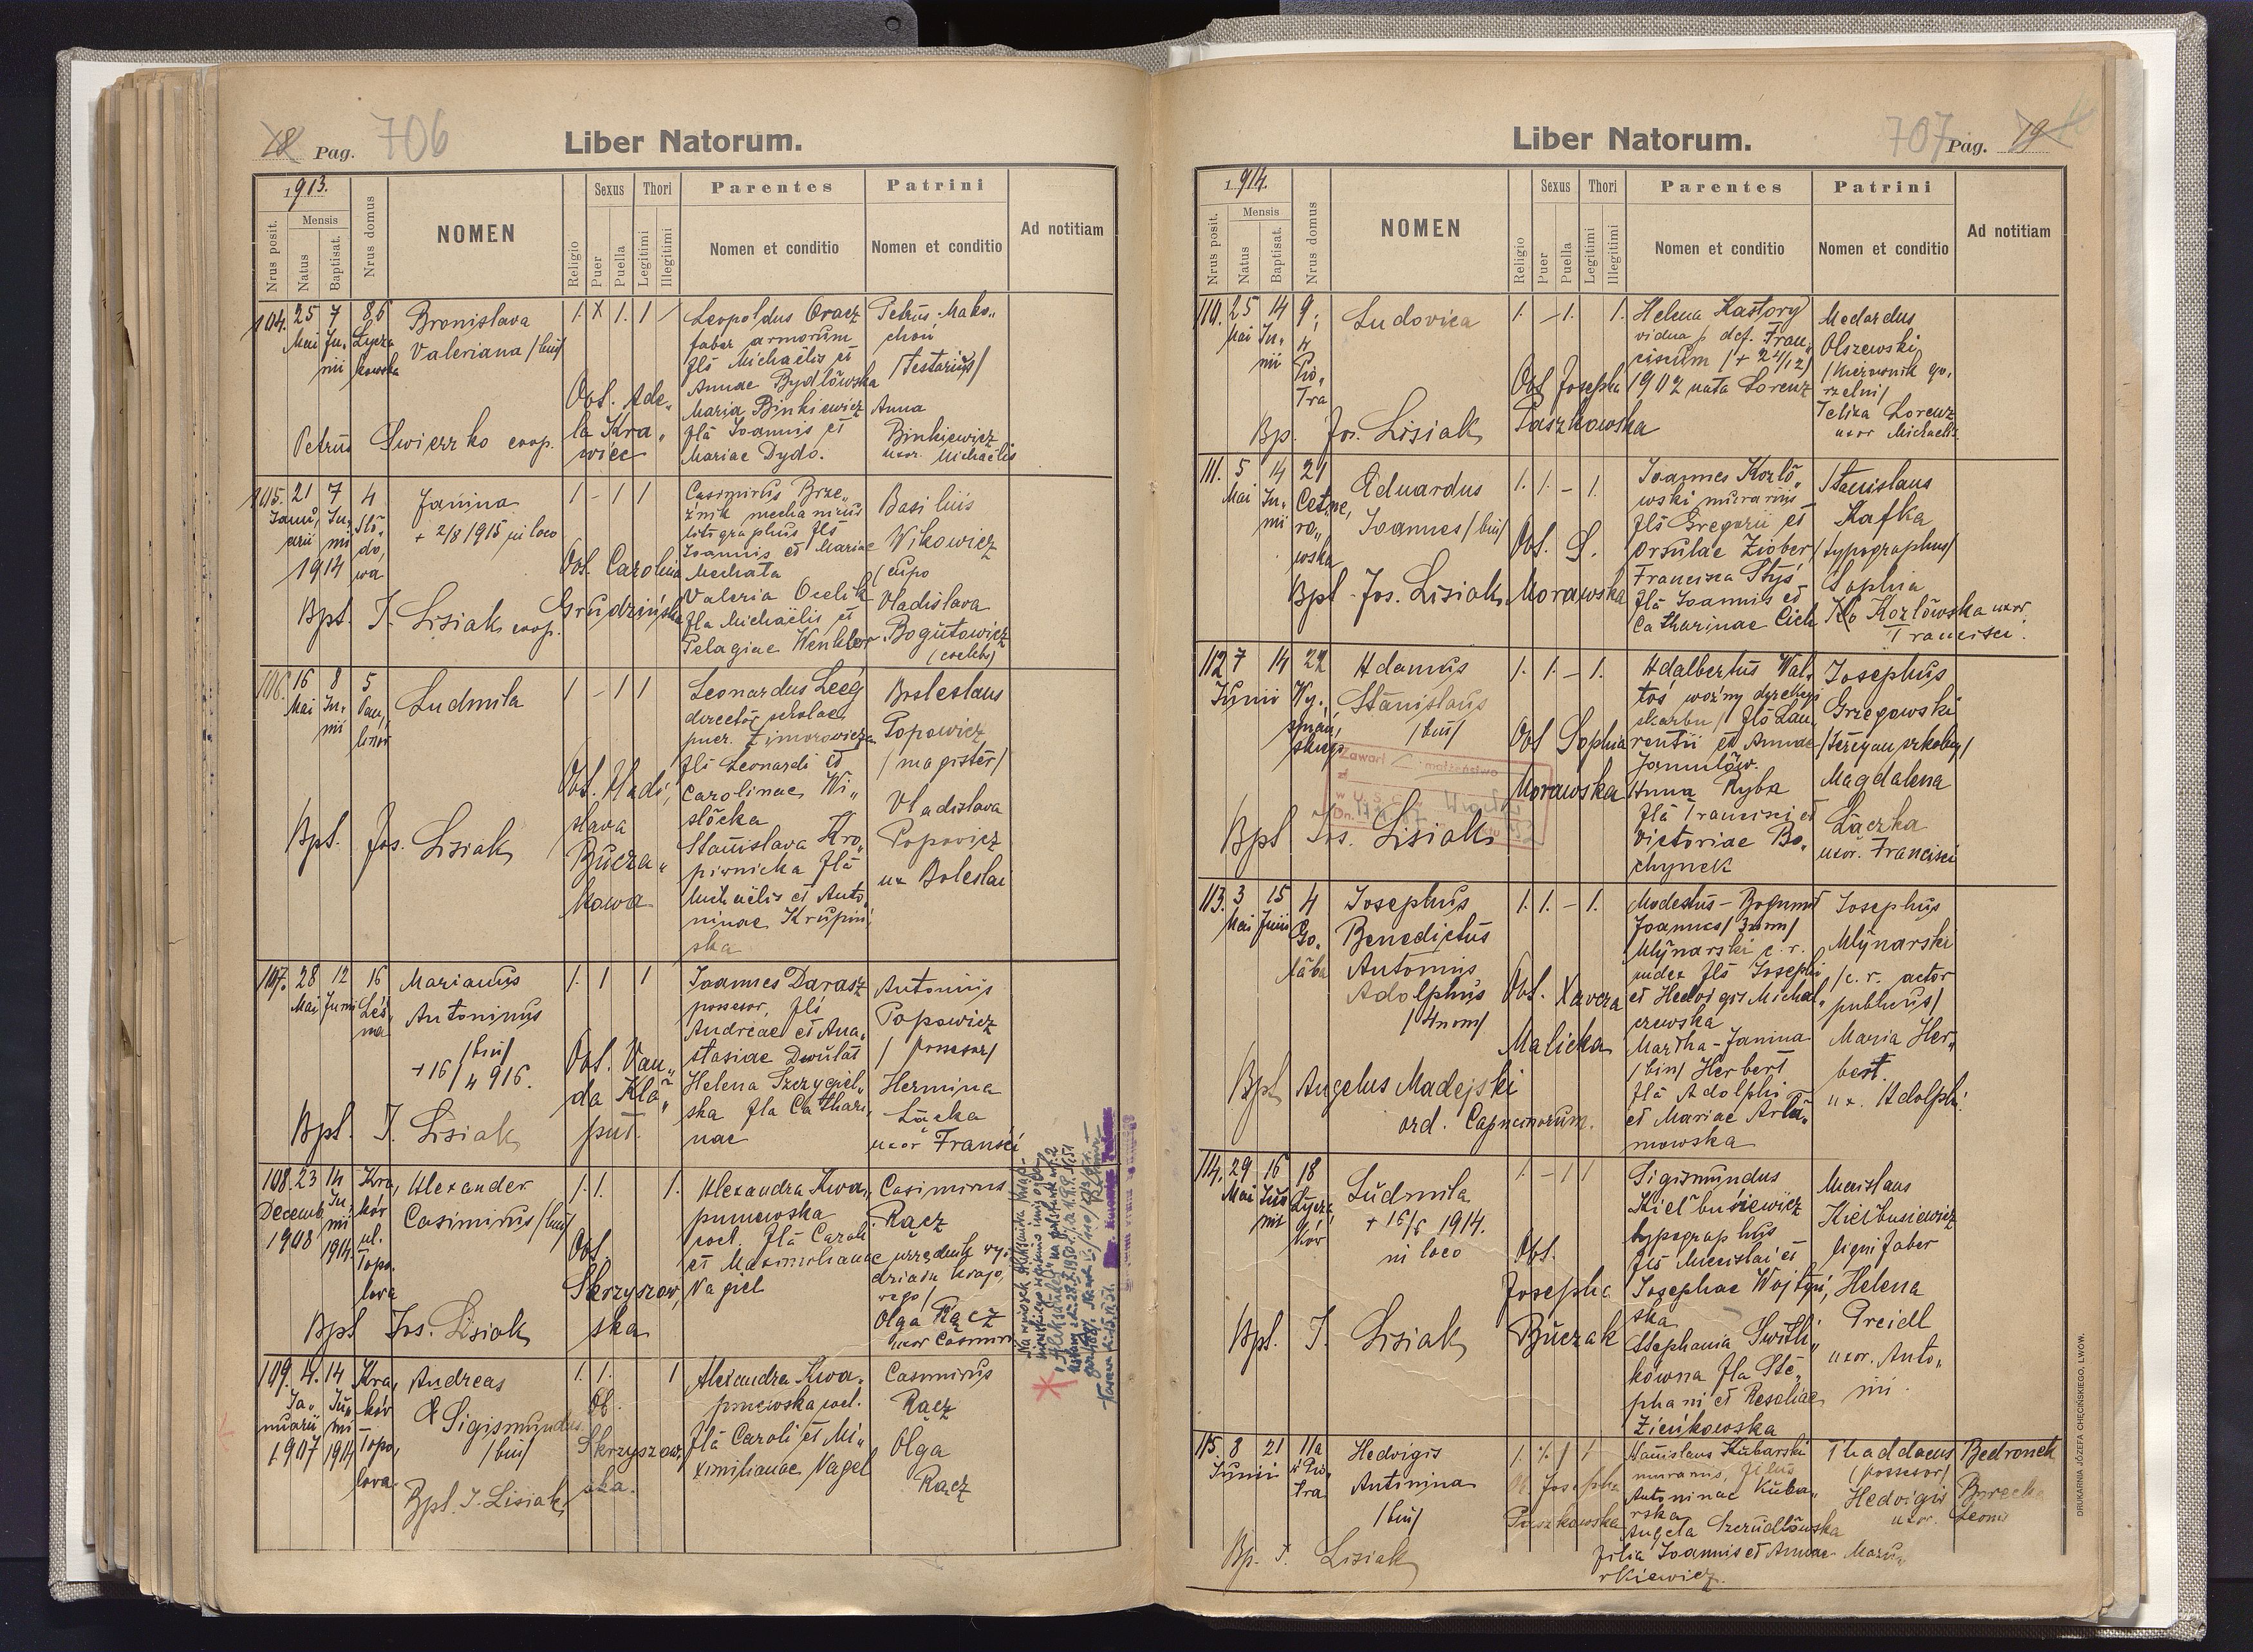 18 Pag. 706
Liber Natorum.
1913.
Nrus posit.
Mensis
Natus
Baptisat.
Nrus domus
NOMEN
Religio
Sexus
Puer
Puella
Thori
Legitimi
Illegitimi
Parentes
Nomen et conditio
Patrini
Nomen et conditio
Ad notitiam
104. 25 Mai 7 Junii 86 Łycza kowska
Bronislava
Valeriana /bin/
Petrus Swierzko coop.
Obs. Ade„
la Kra„
wiec
Leopoldus Oracz
faber armorum
fls Michaëlis et
Annae Bydłowska
Maria Binkiewicz
fla Joannis et
Mariae Dydo.
Petrus Mako„
choń
/testarius/
Anna
Binkiewicz
uxor Michaëlis
105. 21 Januarii 1914 7 Junii 4
Janina
+ 2/8 1915 in loco
Bpt. J. Lisiak coop.
Obs. Carolina
Grudzińska
Casimirus Brze„
źnik mechanicus
litographus fls
Joannis et Mariae
Valeria Ocelik
fla Michaëlis et
Pelagiae Wenkler
Basilius
Wikowicz
Vladislava
Bogutowicz
(coelebs)
106. 16 Mai 8 Junii 5
Ludmila
Bpt. Jos. Lisiak
Obs. Vladi„
slava
Bucza„
kowa
Leonardus Leég
director scholae
puer. Zimorowicza
fls Leonardi et
Carolinae Wi„
słocka
Stanislava Kro„
piwnicka fla
Michaëlis et Anto„
ninae Krupiń„
ska
Boleslaus
Popowicz
/magister/
Vladislava
Popowicz
ux Boleslai
107. 28 Mai 12 Junii 16 Leś„ na
Marianus
Antoninus
/bin/
+ 16/4 916.
Bpt. J. Lisiak
Obs. Van„
da Kła„
put.
Joannes Darasz
possesor, fls
Andreae et Ana„
stasiae Dwulat
Helena Szczygiel„
ska fla Cathari„
nae
Antonius
Popowicz
/possesor/
Hermina
Łącka
uxor Francisci
108. 23 Decemb. 1908 14 Junii 1914. Kra„ ków ul. Topo„ lova
Alexander
Casimirus /bin/
Bpt Jos. Lisiak
Obs.
Skrzyszow„
ska
Alexandra Kwa„
pniewska
coel. fla Caroli
et Maximilianae
Nagiel
Casimirus
Rącz
urzędnik wy„
działu krajo„
wego/
Olga Rącz
uxor Casimiri
109. 4. Januarii 1907 14. Junii 1914 Kra„ ków Topo„ lova
Andreas
Sigismundus
/bin/
Bpt. J. Lisiak
Ob.
Skrzyszow„
ska.
Alexandra Kwa„
pniewska coel.
fla Caroli et Mi„
ximilianae Nagel
Casimirus
Rącz
Olga
Rącz
Liber Natorum.
707 Pag. 19
1914.
Nrus posit.
Mensis
Natus
Baptisat.
Nrus domus
NOMEN
Religio
Sexus
Puer
Puella
Thori
Legitimi
Illegitimi
Parentes
Nomen et conditio
Patrini
Nomen et conditio
Ad notitiam
110. 25 Mai 14 Junii 9
Ludovica
Bp. Jos. Lisiak
Obs Josepha
Paszkowska
Helena Kastory
vidua p. def. Fran„
ciscum (+ 24/12)
1902 nata Lorenz
Medardus
Olszewski
/kierownik go„
rzelni/
Felixa Lorenz
uxor Michaelis
111. 5 Mai 14 Junii 21 Cetne„ ro„ wska
Eduardus
Joannes /bin/
Bpt. Jos. Lisiak
Obs. S.
Morawska
Joannes Kozło„
wski murarius
fls Gregorii et
Orsulae Ziober
Francisca Styś
fla Joannis et
Catharinae Cich
Stanislaus
Kafka
/typographus/
Sophia
Kozłowska uxor
Francisci.
112 7 Junii 14 22
Adamus
Stanislaus
/bin/
Bpt Jos. Lisiak
Zawarł małżeństwo
Obs Sophia
Morawska
Adalbertus Wal„
toś woźny dyrekcji
skarbu/ fls Lau„
rentii et Annae
Anna Ryba
fla Francisci et
Victoriae Bo„
chynek
Josephus
Grzegowski
Magdalena
Łączka
uxor. Francisci
113. 3 Mai 15 Junii 4 Go„ łąba
Josephus
Benedictus
Antonius
Adolphus
/4nom/
Bpt Angelus Madejski
ord. Capucinorum.
Obs. Xavera
Malicka
Modestus-Bogumil
Joannes/3nom/
Młynarski c.r.
judex fls Josephi
et Hedvigis Michal„
czewska
Martha-Janina
/bin/ Herbert
fla Adolphi
et Mariae Arła„
mowska
Josephus
Młynarski
/c.r. actor
publicus/
Maria Her„
bert.
ux. Adolphi
114. 29 Mai 16 Junii 18 Łycza ków
Ludmila
+ 16/6 1914.
in loco
Bpt. J. Lisiak
Obs.
Josepha
Buczak
Sigismundus
Kiełbusiewicz
typographus
fls Mieceslai et
Josephae Wojtyń„
ska
Stephania Switli„
kówna fla Ste„
phani et Rosaliae
Zieńkowska
Miecislaus
Kiełbusiewicz
lignifaber
Helena
Preidl
uxor. Anto„
nii.
115. 8 Junii 21 11a
Hedvigis
Antonina
/bin/
Bp. J. Lisiak
Ob. Josepha
Paszkowska
Stanislaus Kubarski
murarius, filius
Antoninae Kuba„
rska
Angela Szczudłowska
filia Joannis et Annae Mazu„
rkiewicz.
Thaddaeus Bedronek
(possesor)
Hedvigis
uxor. Leonis
DRUKARNIA JÓZEFA CHĘCIŃSKIEGO, LWÓW.